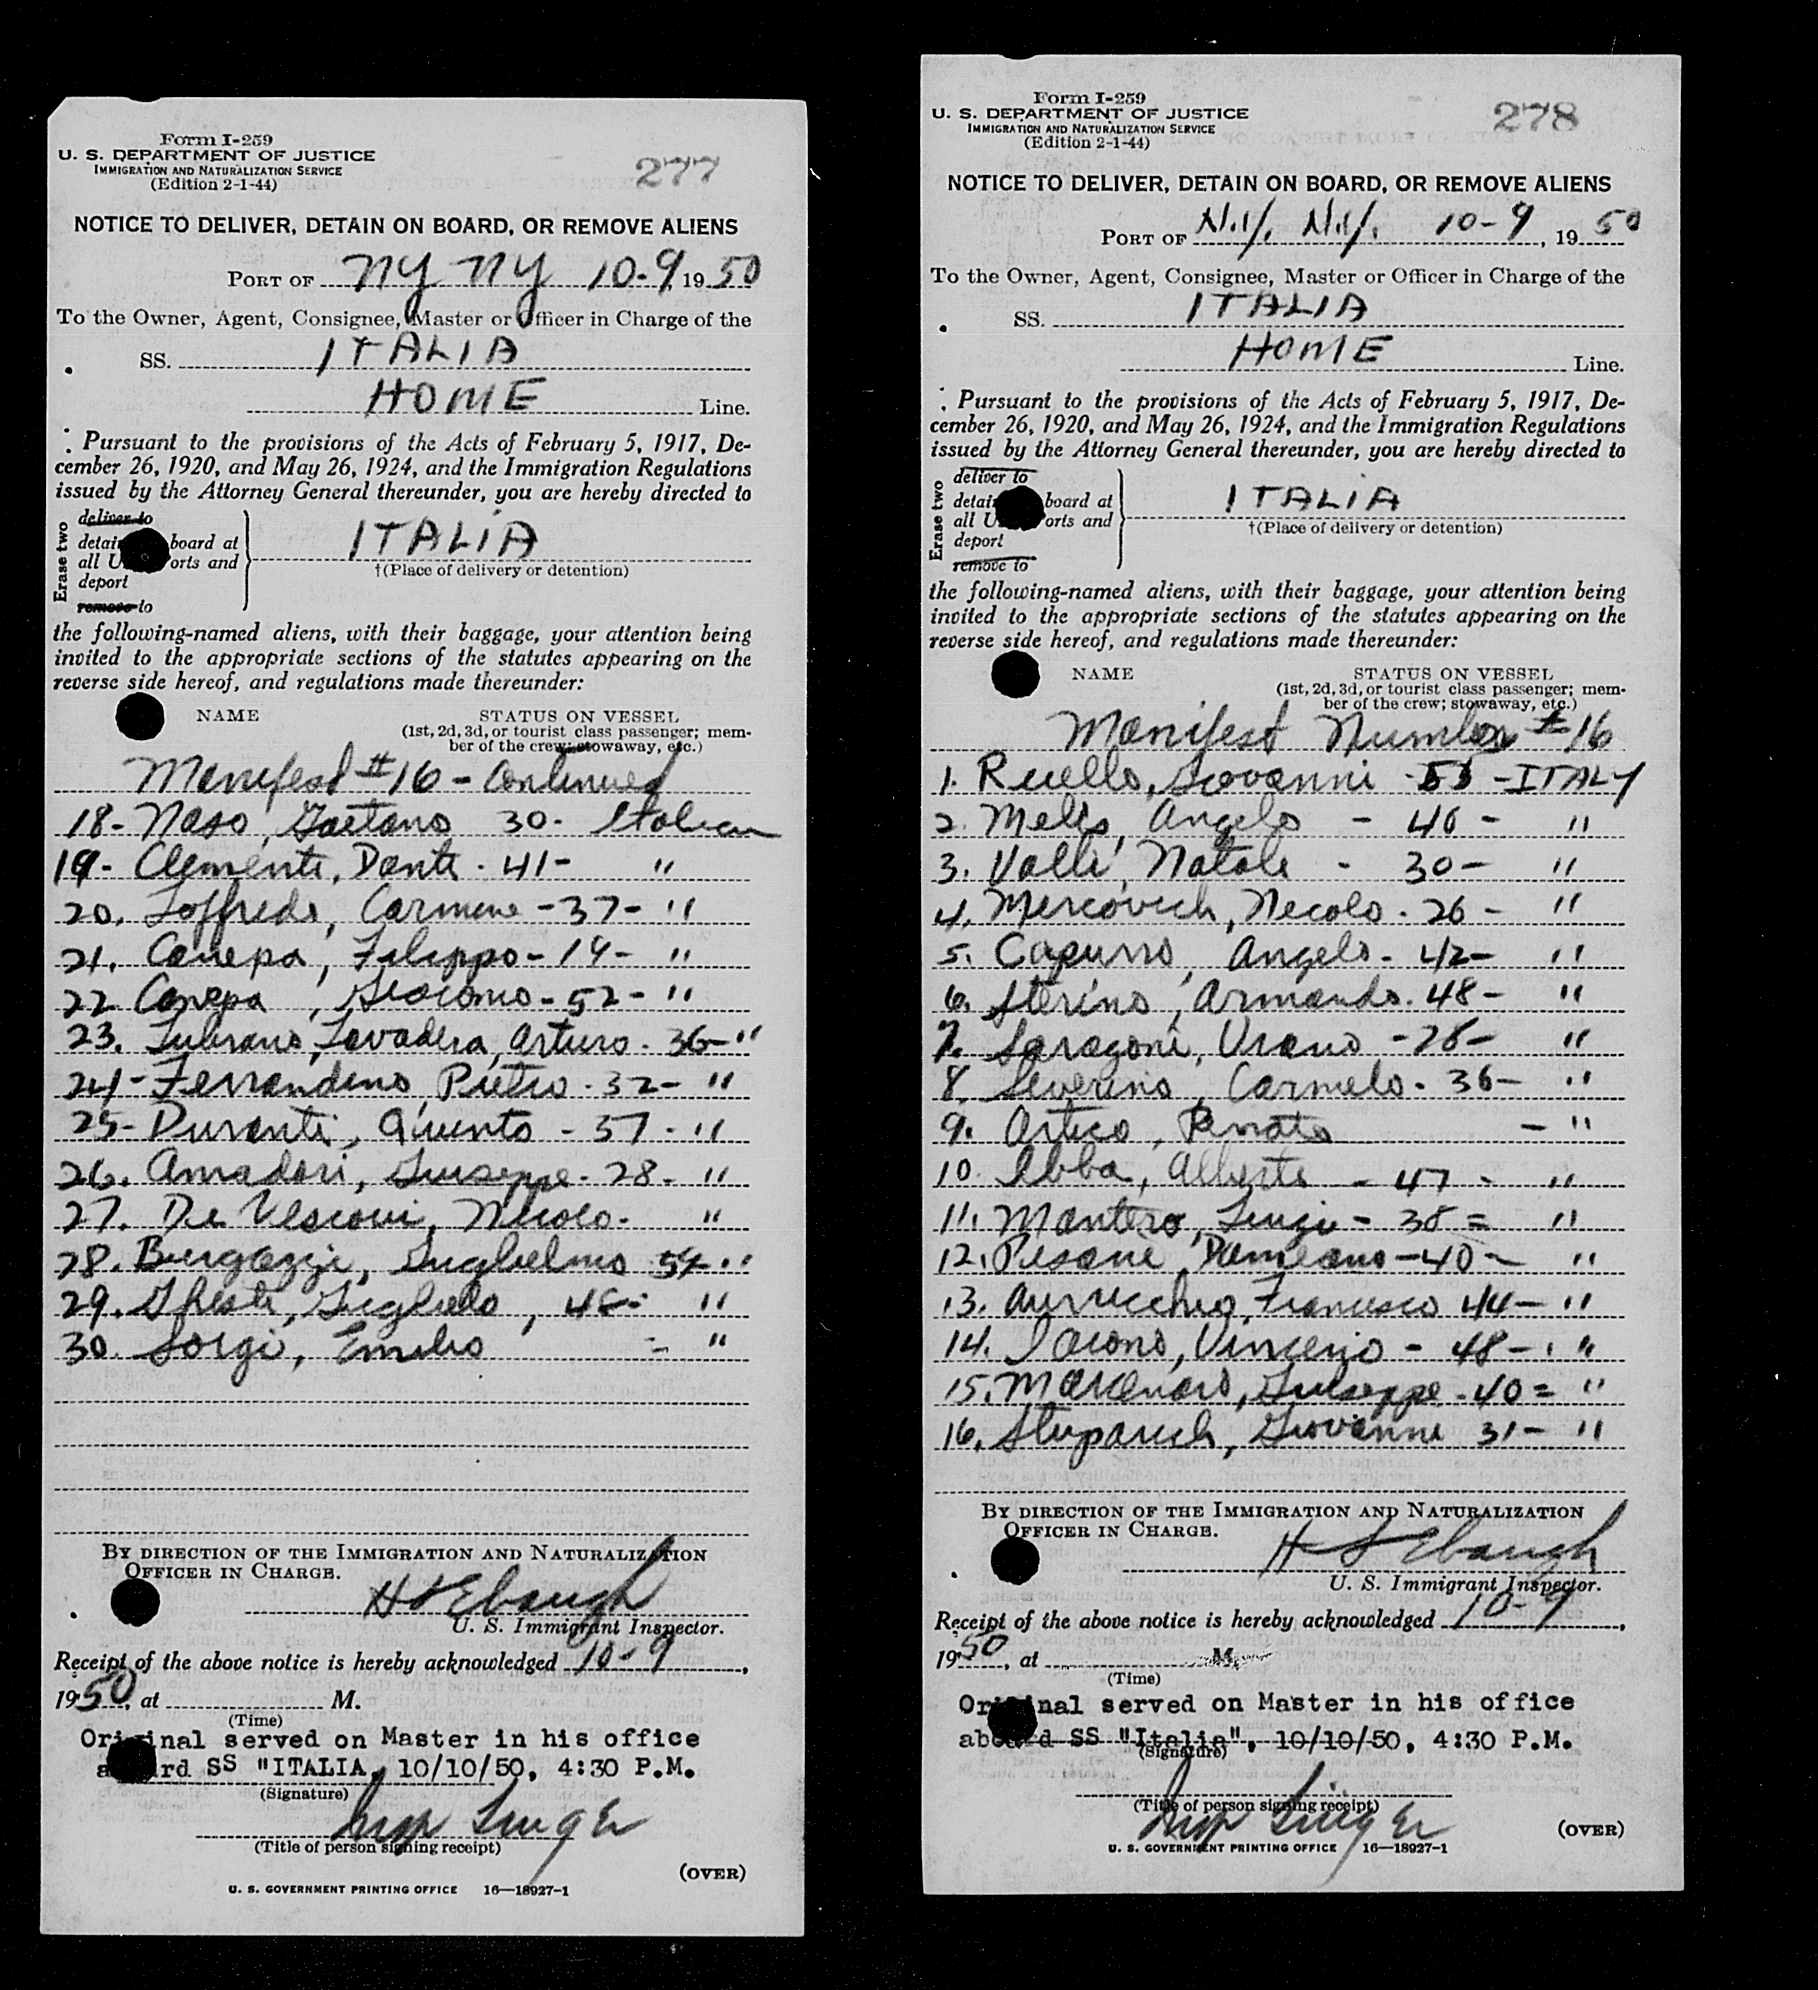 Form I-259
U. S. DEPARTMENT OF JUSTICE
IMMIGRATION AND NATURALIZATION SERVICE
(Edition 2-1-44)
277
NOTICE TO DELIVER, DETAIN ON BOARD, OR REMOVE ALIENS
PORT OF NY NY 10-9 1950
To the Owner, Agent, Consignee, Master or Officer in Charge of the
SS. ITALIA
HOME Line.
Pursuant to the provisions of the Acts of February 5, 1917, De-
cember 26, 1920, and May 26, 1924, and the Immigration Regulations
issued by the Attorney General thereunder, you are hereby directed to
Erase two
deliver to
detain board at
all U. orts and
deport
remove to
ITALIA
†(Place of delivery or detention)
the following-named aliens, with their baggage, your attention being
invited to the appropriate sections of the statutes appearing on the
reverse side hereof, and regulations made thereunder:
NAME STATUS ON VESSEL
(1st, 2d, 3d, or tourist class passenger; mem-
ber of the crew; stowaway, etc.)
Manifest #16 - Continued
18- Naso, Gaetano 30- Italian
19- Clementi, Dante - 41- "
20. Loffredo, Carmine - 37- "
21. Canepa, Filippo - 19- "
22 Canepa, Giacomo - 52- "
23. Lubrano, Lavadera, Arturo - 36- "
24- Ferrandino, Pietro - 32- "
25- Duranti, Quinto - 37- "
26. Amadori, Giuseppe - 28- "
27. De Vescovi, Nicolo- "
28. Burgazzi, Guglielmo 54- "
29. Ghesti, 48- "
30. Sorgi, Emilio - "
BY DIRECTION OF THE IMMIGRATION AND NATURALIZATION
OFFICER IN CHARGE.
H S Ebaugh
U. S. Immigrant Inspector.
Receipt of the above notice is hereby acknowledged 10-9,
1950, at M.
(Time)
Original served on Master in his office
aboard SS "ITALIA, 10/10/50, 4:30 P.M.
(Signature)
Insp Singer
(Title of person signing receipt)
(OVER)
U. S. GOVERNMENT PRINTING OFFICE 16—18927-1
Form I-259
U. S. DEPARTMENT OF JUSTICE
IMMIGRATION AND NATURALIZATION SERVICE
(Edition 2-1-44)
278
NOTICE TO DELIVER, DETAIN ON BOARD, OR REMOVE ALIENS
PORT OF N.Y. N.Y. 10-9, 1950
To the Owner, Agent, Consignee, Master or Officer in Charge of the
SS. ITALIA
HOME Line.
Pursuant to the provisions of the Acts of February 5, 1917, De-
cember 26, 1920, and May 26, 1924, and the Immigration Regulations
issued by the Attorney General thereunder, you are hereby directed to
Erase two
deliver to
detain board at
all U orts and
deport
remove to
ITALIA
†(Place of delivery or detention)
the following-named aliens, with their baggage, your attention being
invited to the appropriate sections of the statutes appearing on the
reverse side hereof, and regulations made thereunder:
NAME STATUS ON VESSEL
(1st, 2d, 3d, or tourist class passenger; mem-
ber of the crew; stowaway, etc.)
Manifest Number #16
1. Ruello, Giovanni - 55 - ITALY
2. Melis, Angelo - 46 - "
3. Valli, Natale - 30 - "
4. Mercovich, Necolo - 26 - "
5. Capurro, Angelo - 42- "
6. Sterino, Armando - 48 - "
7. Saragoni, Urano - 26- "
8. Severino, Carmelo - 36- "
9. Artico, Renato - "
10. Ibba, Alberto - 47 - "
11. Mantero, Luigi - 38 = "
12. Pisani, Damiano - 40 - "
13. Aurucchio, Francesco 44- "
14. Iacono, Vincenzo - 48 - "
15. Marcenaro, Giuseppe - 40 = "
16. Stuparich, Giovanni 31- "
BY DIRECTION OF THE IMMIGRATION AND NATURALIZATION
OFFICER IN CHARGE.
H S Ebaugh
U. S. Immigrant Inspector.
Receipt of the above notice is hereby acknowledged 10-9,
1950, at M.
(Time)
Original served on Master in his office
aboard SS "Italia", 10/10/50, 4:30 P.M.
(Signature)
(Title of person signing receipt)
Insp Singer
(OVER)
U. S. GOVERNMENT PRINTING OFFICE 16—18927-1